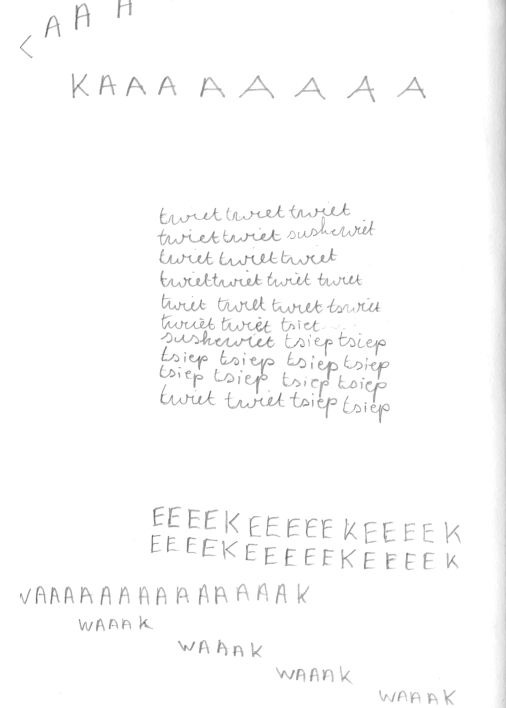 <AAA
KAAAAAAAA
twiet twiet twiet
twiet twiet suskewiet
twiet twiet twiet
twiet twiet twiet twiet
twiet twiet twiet tswiet
twiet twiet tsiet
suskewiet tsiep tsiep
tsiep tsiep tsiep tsiep
tsiep tsiep tsiep tsiep
twiet twiet tsiep tsiep
EEEEK EEEEE KEEEEK
EEEEKEEEEEKEEEEK
VAAAAAAAAAAAAAAK
WAAAK
WAAAK
WAAAK
WAAAK